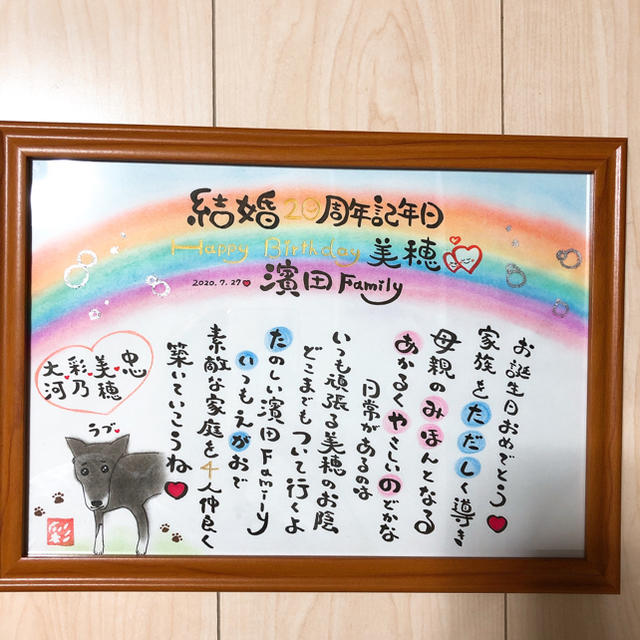 結婚20周年記年日
Happy Birthday 美穂
2020.7.27 濱田Family
お誕生日おめでとう
家族をただしく導き
母親のみほんとなる
あかるくやさしいのどかな
日常があるのは
いつも頑張る美穂のお陰
どこまでもついて行くよ
たのしい濱田Family
いつもえがおで
素敵な家庭を4人仲良く
築いていこうね
忠
美穂
彩乃
大河
うづ